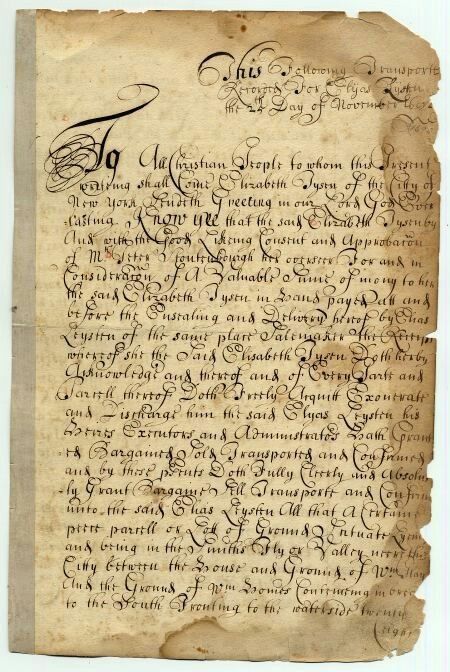 This Following Transporte
Recorded For Elyas Leysten
the 24th Day of November
To All Christian People to whom this Present
writeing shall Come Elizabeth Tysen of the Citty of
New York Sendeth Greeting in our Lord God Ever
lasting Know yee that the said Elizabeth Tysen by
And with the Good Likeing Consent and Approbation
of Mr Peter Stoutenborough her overseer For and in
Consideration of A Valuable Sume of mony to her
the said Elizabeth Tysen in Hand payed att and
before the Ensealing and Delivery hereof by Elias
Leysten of the same place Salemaker the Receipt
whereof she the Said Elisabeth Tysen Doth hereby
Acknowledge and thereof and of Every Parte and
Parcell thereof Doth Freely Acquitt Exonerate
and Discharge him the said Elyas Leysten his
Heires Executors and Administrators Hath Grant
ed Bargained Sold Transported and Confirmed
and by these psents Doth Fully Cleerly and Absolut
ly Grant Bargaine Sell Transporte and Confirm
unto the said Elias Leysten All that A Certaine
peece parcell or Lott of Ground Scituate Lyeing
and being in the Smiths Fly or Valley neere the
Citty between the House and Ground of Wm
And the Ground of Wm Bomes Conteineing in
to the South Fronting to the waterside twenty
Eight